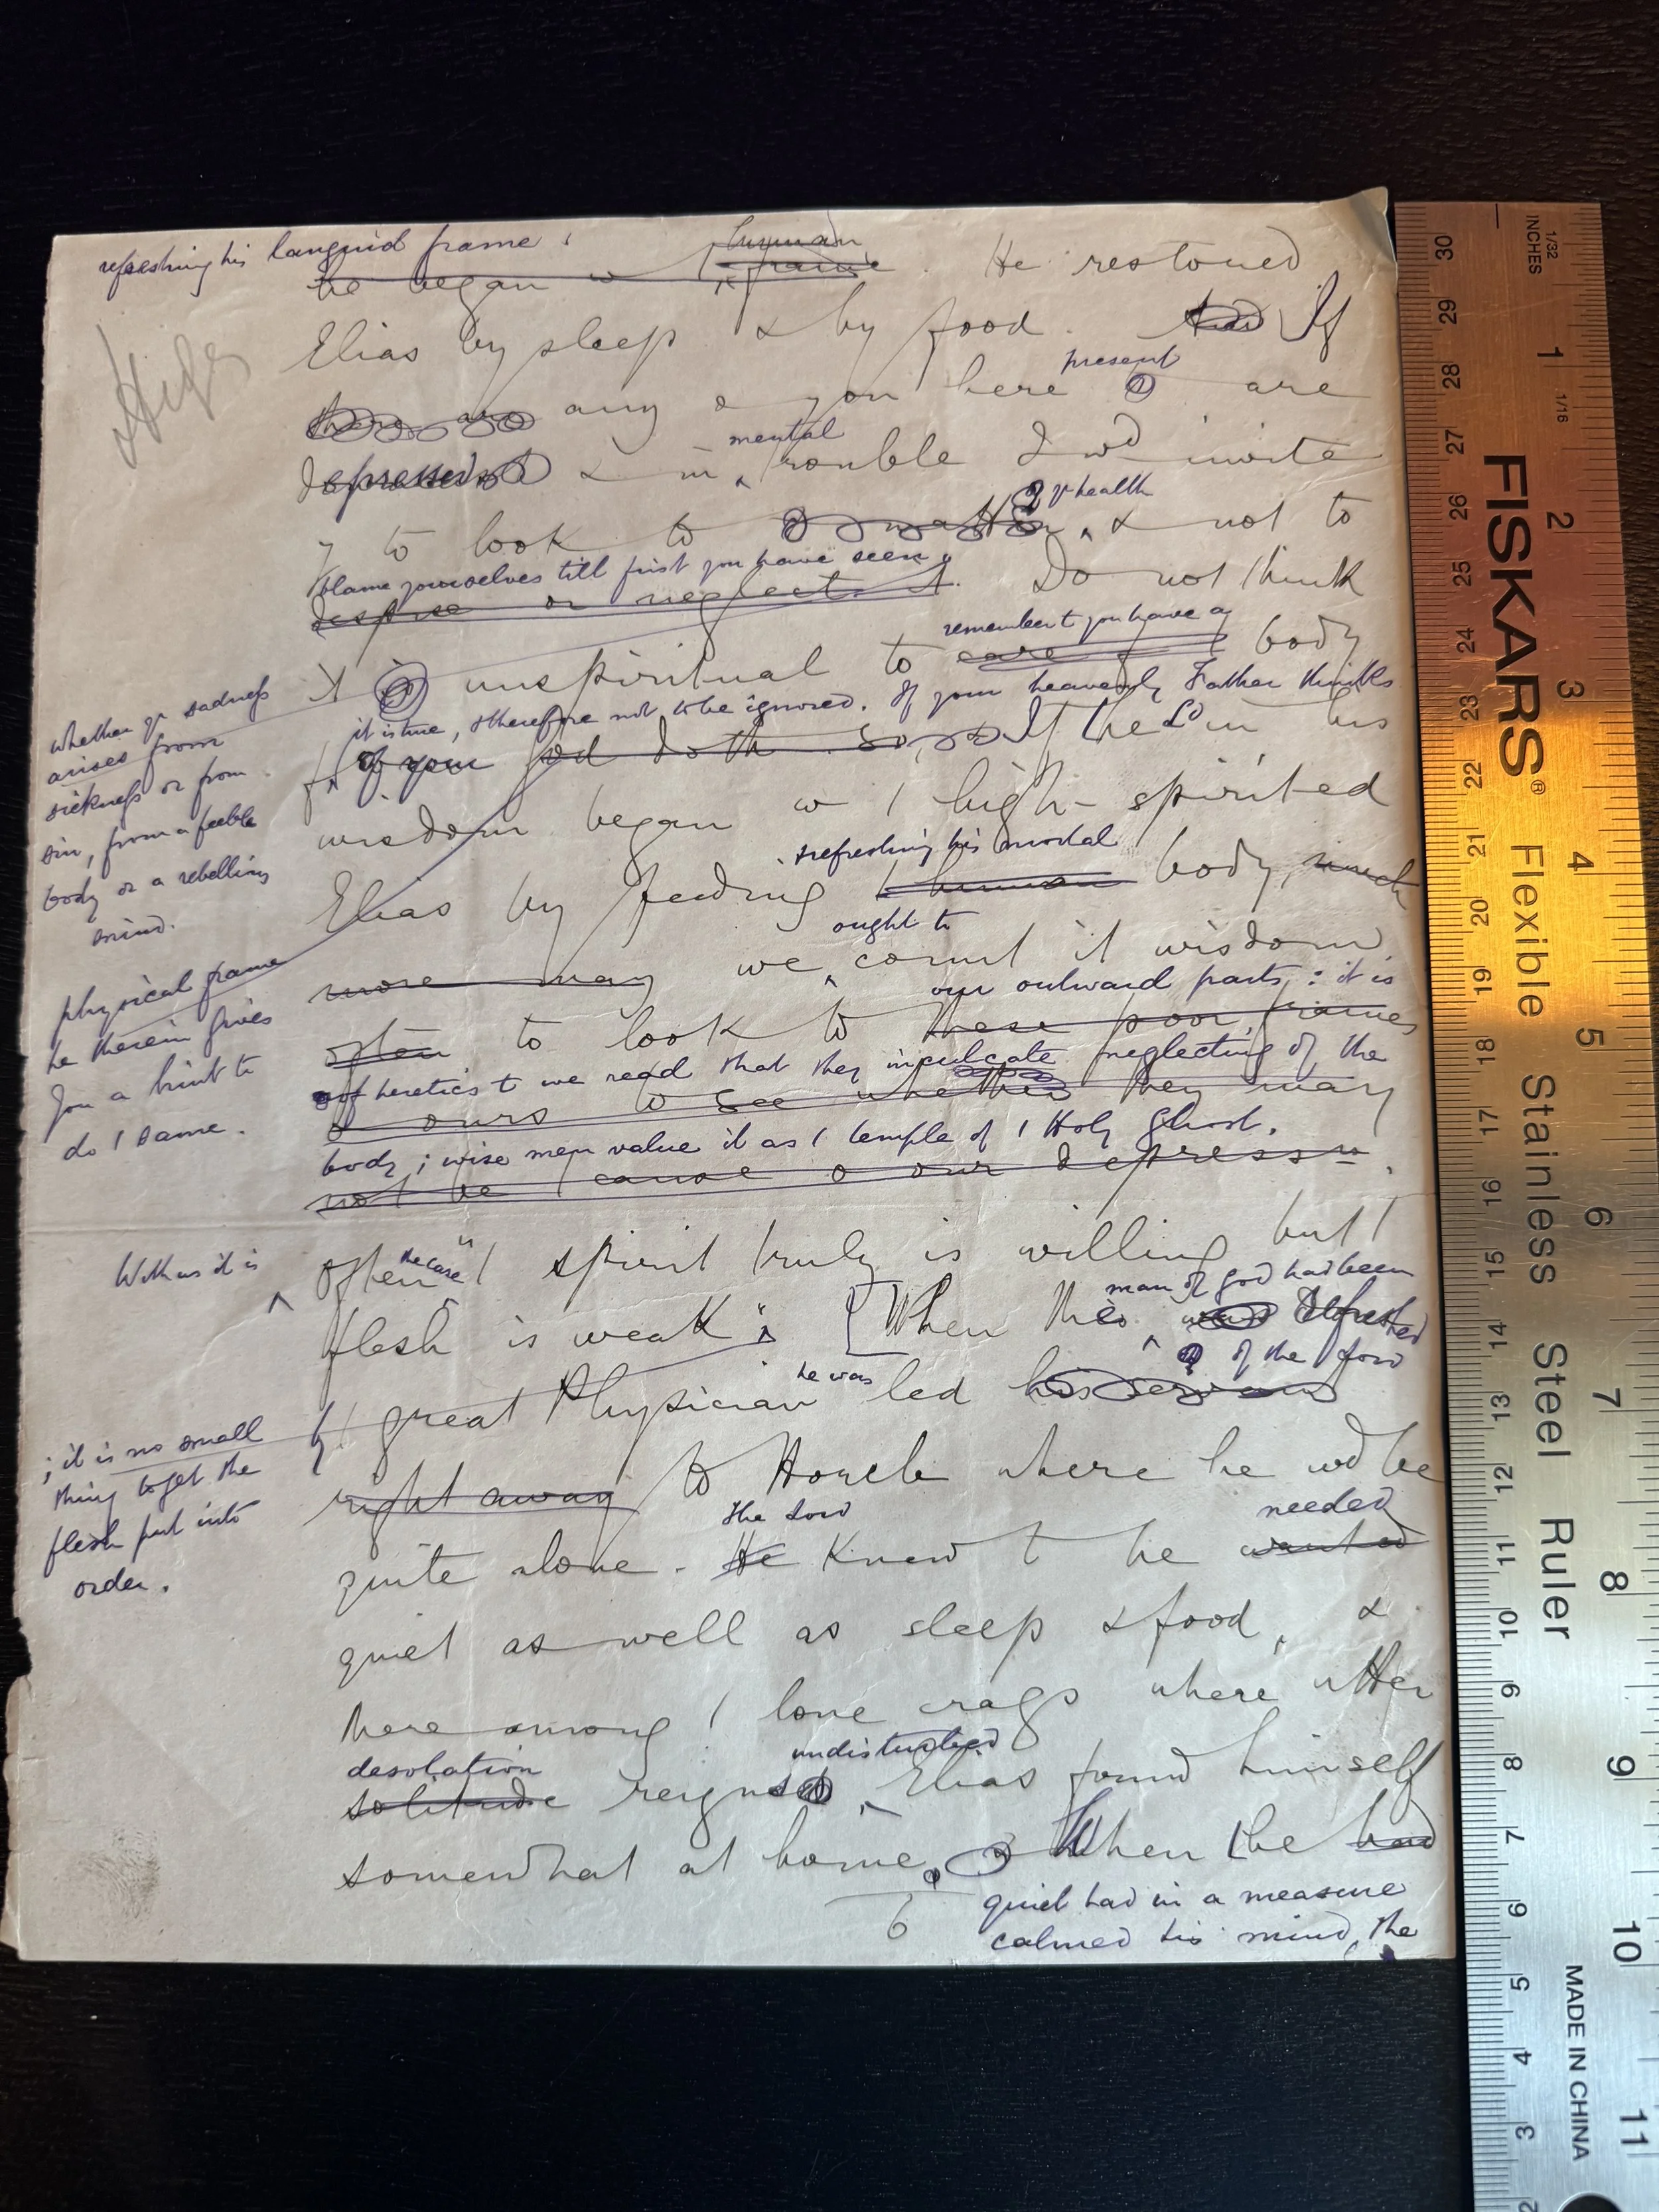 refreshing his languid frame;
human
he began w / frame. He restored
Elias by sleep & by food. And If
present
there are any o you here are
mental
depressed & in trouble I wd invite
yr health
y to look to matter & not to
blame yourselves till first you have seen
despise or neglect it. Do not think
remember t you have a
it unspiritual to care body
it is true, & therefore not to be ignored. If your heavenly Father thinks
of your God doth so If the Ld in his
wisdom began w / high-spirited
& refreshing his mortal
Elias by feeding / human body, much
ought to
more may we count it wisdom
our outward parts: it is
often to look to these poor frames
of heretics t we read that they inculcate neglecting of the
o ours to see whether they may
body; wise men value it as / temple of / Holy Ghost.
not be / cause o our depression.
the case
often "/ spirit truly is willing but /
man of God had been
flesh is weak"; [When the was refreshed
he was of the Lord
by / great Physician led his servant
right away to Horeb where he wd be
the Lord needed
quite alone. He knew t he wanted
quiet as well as sleep & food, &
there among / lone crags where utter
desolation undisturbed
solitude reigned Elias found himself
somewhat at home. When the had
quiet had in a measure
6
calmed his mind, the
whether yr sadness
arises from
sickness or from
sin, from a feeble
body or a rebellious
mind.
physical frame
he therein gives
you a hint to
do / same.
With us it is
; it is no small
thing to get the
flesh put into
order.
1/32
INCHES
1/16
30
29
28
27
26
25
24
23
22
21
20
19
18
17
16
15
14
13
12
11
10
9
8
7
6
5
4
3
2
1
2
3
4
5
6
7
8
9
10
11
FISKARS® Flexible Stainless Steel Ruler
MADE IN CHINA